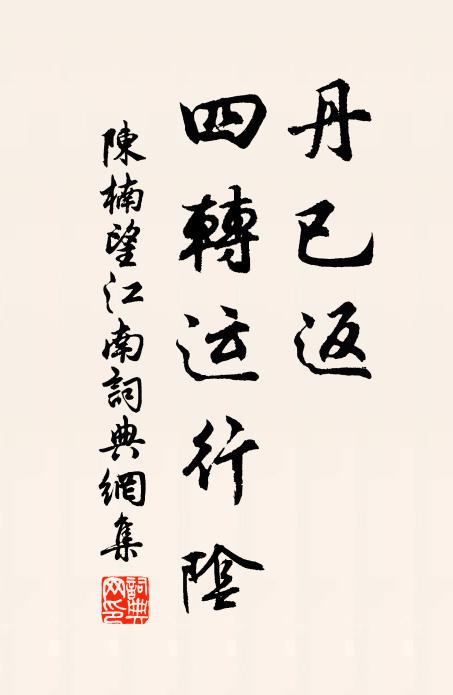 丹已返
四轉运行陰
陳楠望江南詞典網集
詞典网印